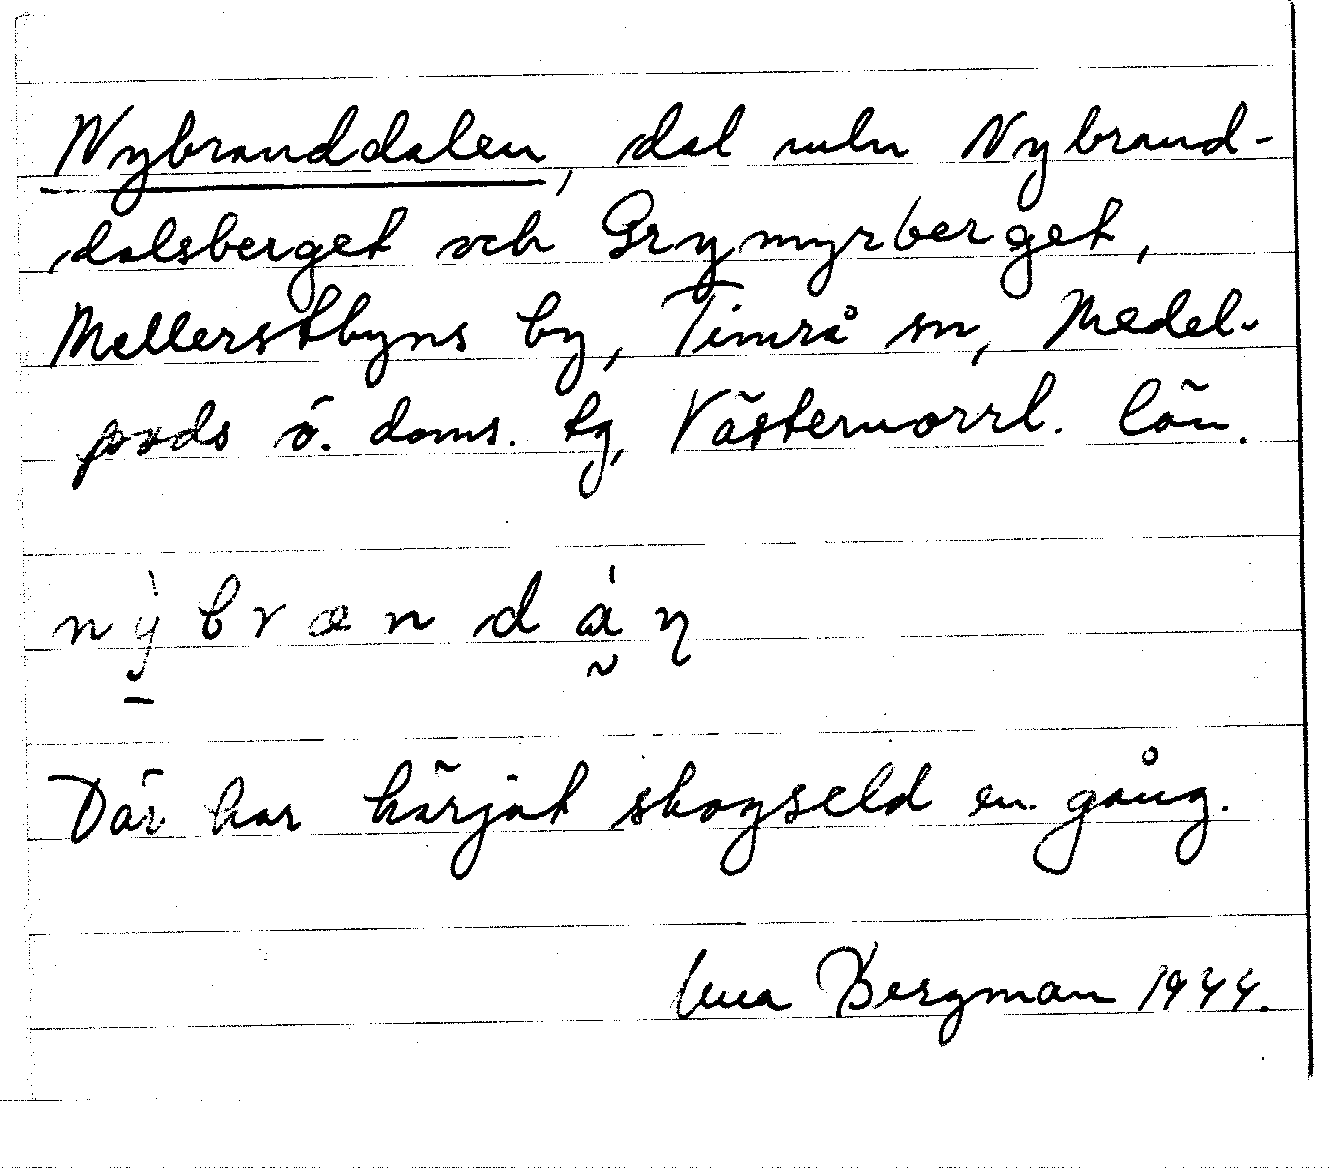 Nybranddalen, dal mln Nybrand-
dalsberget och Grymyrberget,
Mellerstbyns by, Timrå sn, Medel-
pads ö. doms. tg, Västernorrl. län.
nỳbrænd
Där har härjat skogseld en gång.
Bergman 1944.